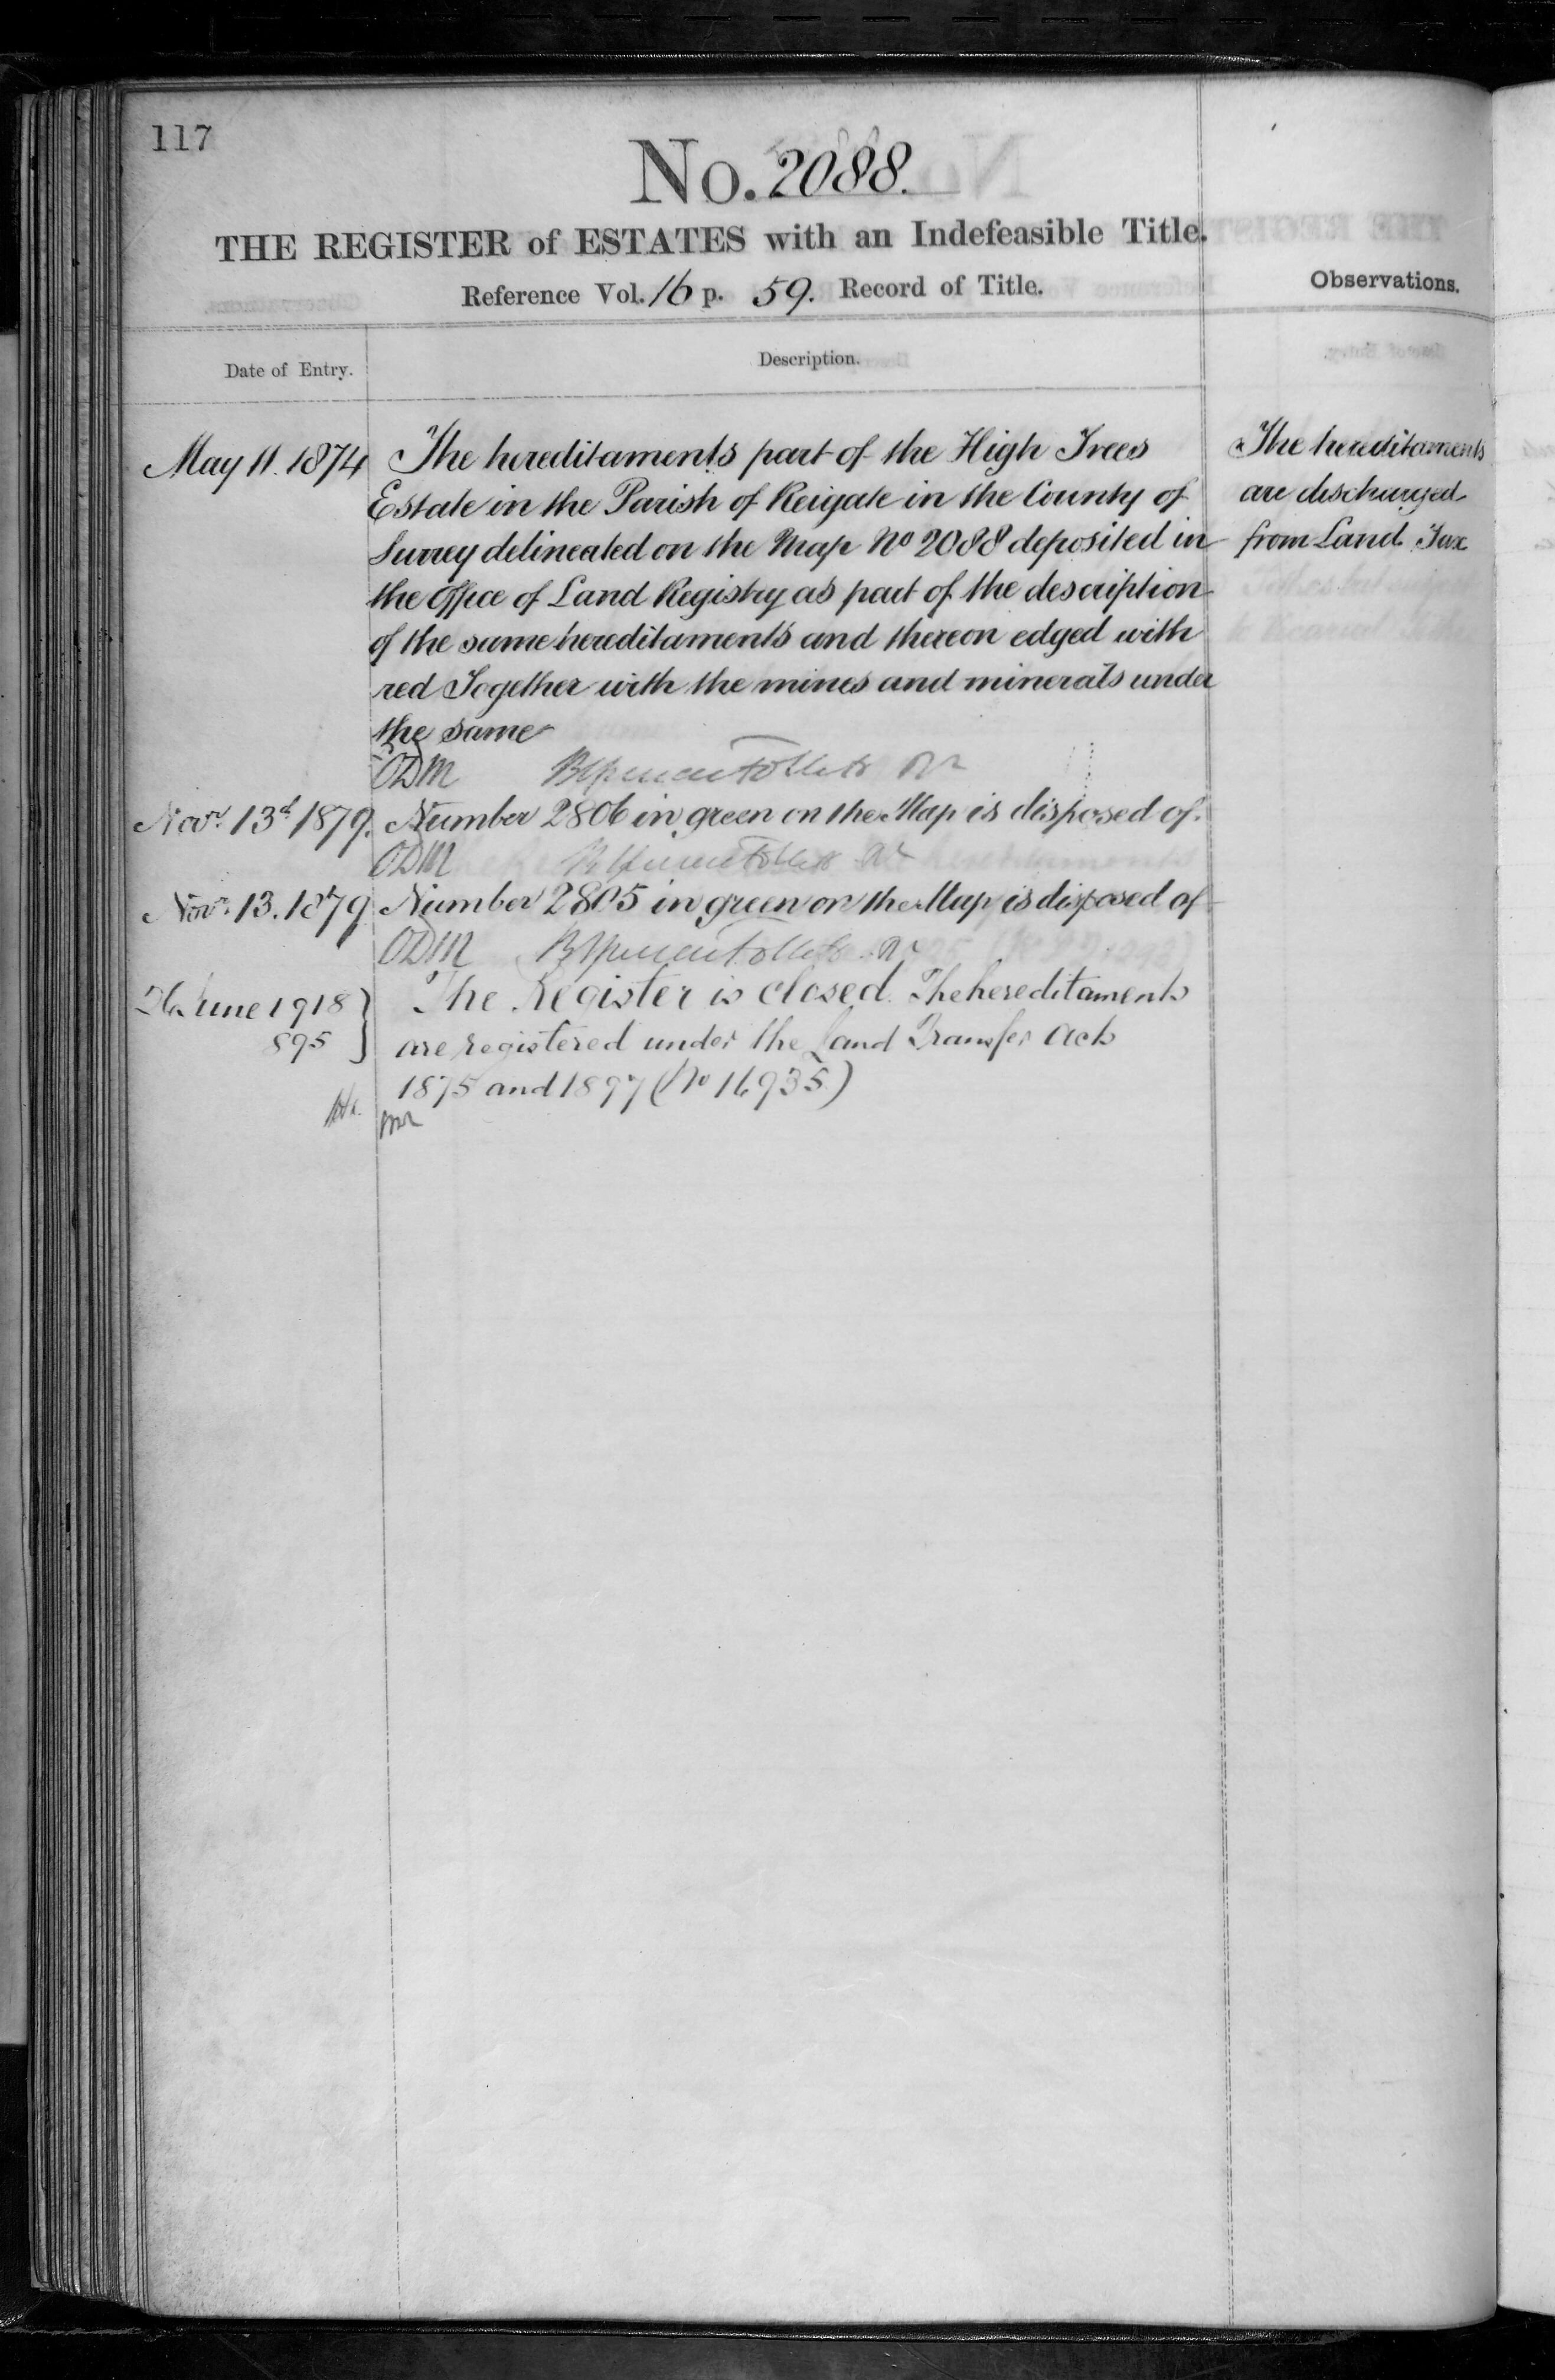 117
No. 2088.
THE REGISTER of ESTATES with an Indefeasible Title.
Reference Vol. 16 p. 59. Record of Title.
Observations.
Date of Entry.
Description.
May 11. 1874
The hereditaments part of the High Trees
Estate in the Parish of Reigate in the County of
Surrey delineated on the Map No 2088 deposited in
the Office of Land Registry as part of the description
of the same hereditaments and thereon edged with
red Together with the mines and minerals under
the same
The hereditaments
are discharged
from Land Tax
ODM
Novr. 13th 1879.
Number 2806 in green on the Map is disposed of.
ODM
Novr. 13. 1879
Number 2805 in green on the Map is disposed of
ODM
26 June 1918
895
The Register is closed. The hereditaments
are registered under the Land Transfer Acts
1875 and 1897 (No 16935)